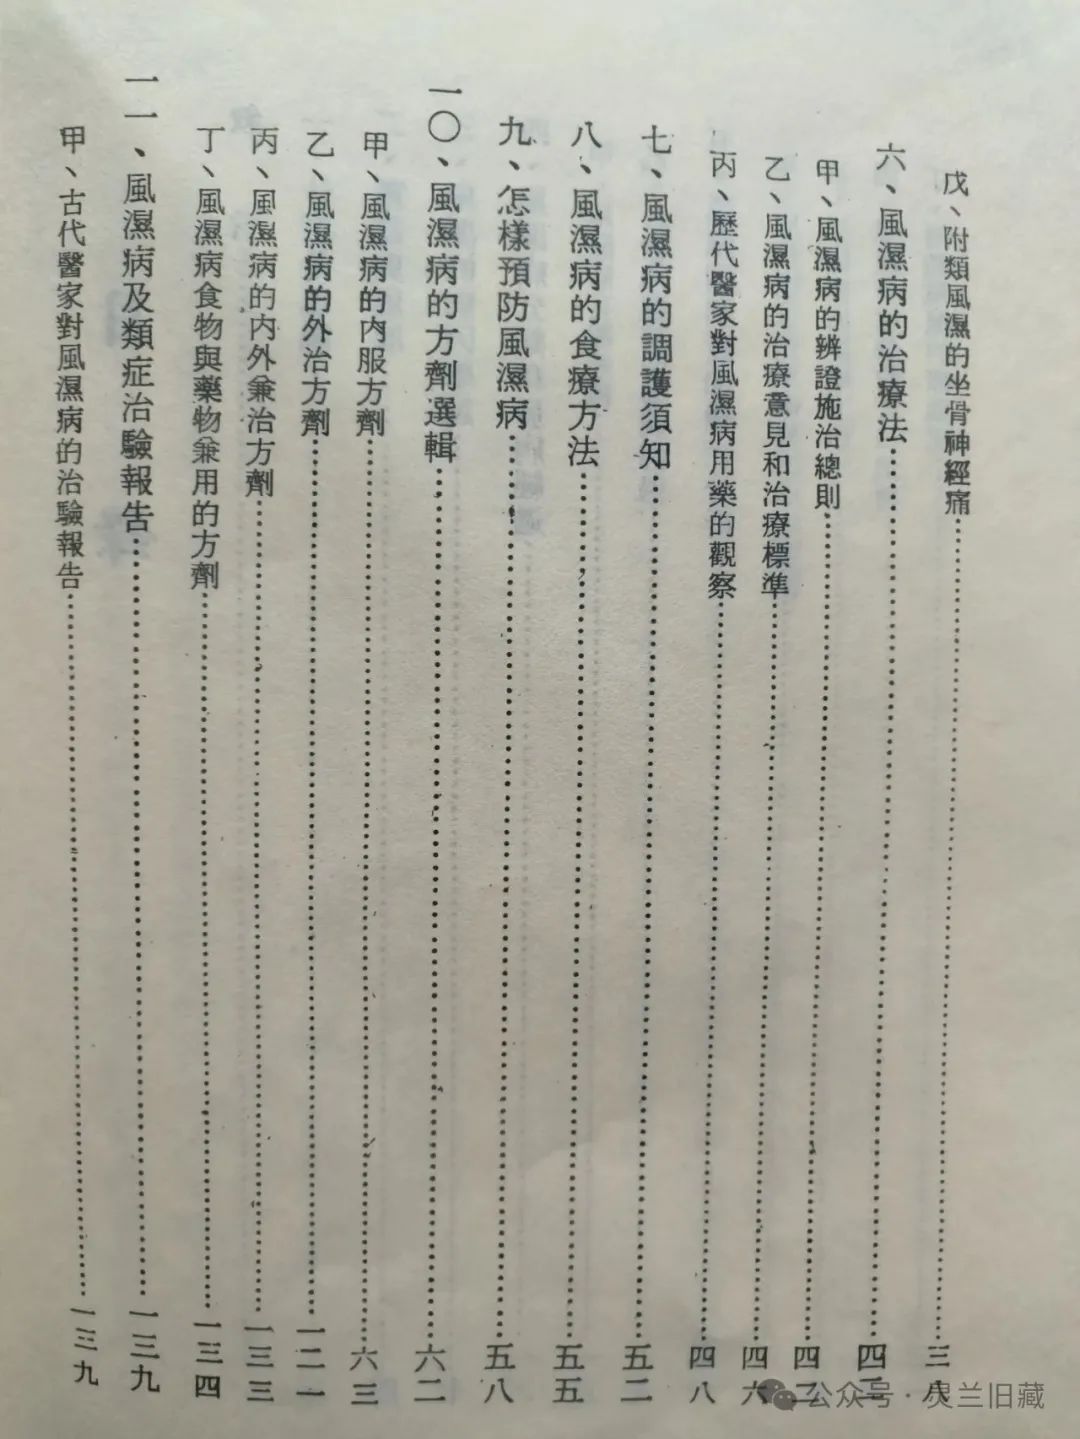 戊、附類風濕的坐骨神經痛……三八
六、風濕病的治療法……四二
甲、風濕病的辨證施治總則……四二
乙、風濕病的治療意見和治療標準……四六
丙、歷代醫家對風濕病用藥的觀察……四八
七、風濕病的調護須知……五二
八、風濕病的食療方法……五五
九、怎樣預防風濕病……五八
一〇、風濕病的方劑選輯……六二
甲、風濕病的內服方劑……六三
乙、風濕病的外治方劑……一二一
丙、風濕病的內外兼治方劑……一三三
丁、風濕病食物與藥物兼用的方劑……一三四
一一、風濕病及類症治驗報告……一三九
甲、古代醫家對風濕病的治驗報告……一三九
公众号·灵兰旧藏